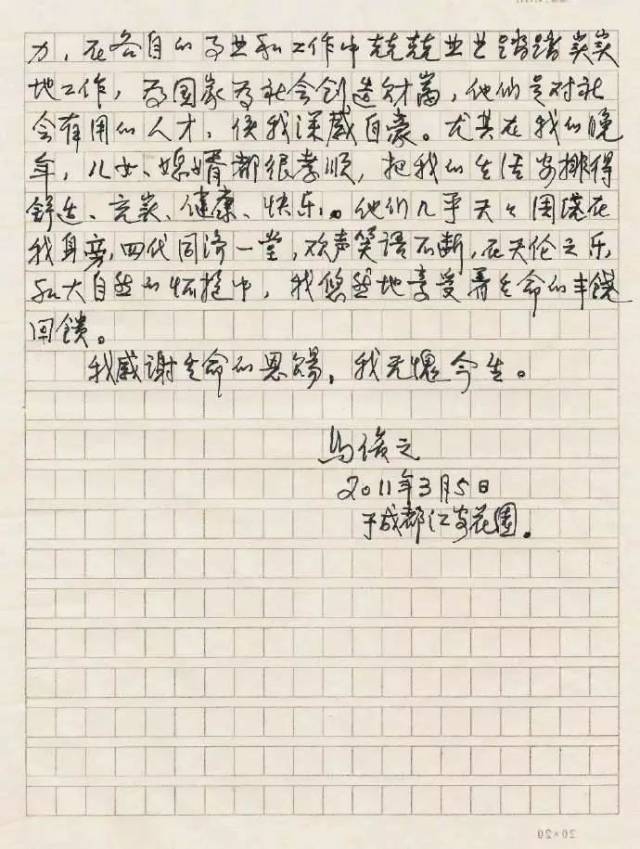 力，在各自的事业和工作中兢兢业业踏踏实实
地工作，为国家为社会创造财富，他们是对社
会有用的人才，使我深感自豪。尤其在我们晚
年，儿女、媳婿都很孝顺，把我们生活安排得
舒适、充实、健康、快乐。他们几乎天天围绕在
我身旁，四代同济一堂，欢声笑语不断，在天伦之乐
和大自然的怀抱中，我悠然地享受着生命的丰饶
回馈。
我感谢生命的恩赐，我无愧今生。
马俊之
2011年3月5日
于成都江安花园。
20×20